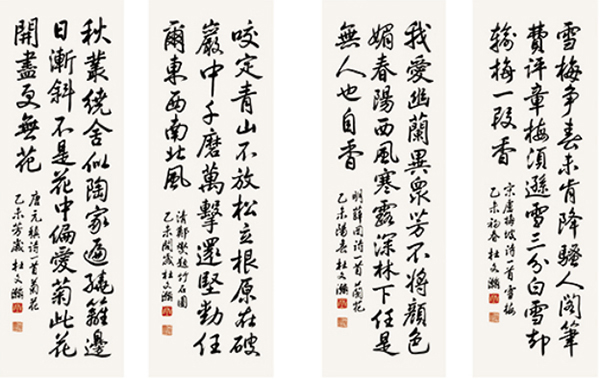 雪梅争春未肯降騷人阁筆
費评章梅須遜雪三分白雪却
輸梅一段香
宋盧梅坡诗一首雪梅
乙未初春杜文
我愛幽蘭異衆芳不將顔色
媚春陽西風寒露深林下任是
無人也自香
明薛网诗一首蘭花
乙未陽春杜文
咬定青山不放松立根原在破
巖中千磨萬擊還堅勁任
爾東西南北風
清鄭燮題竹石圖
乙未歲杜文
秋叢繞舍似陶家遍繞籬邊
日漸斜不是花中偏愛菊此花
開盡更無花
唐元稹诗一首菊花
乙未芳歲杜文